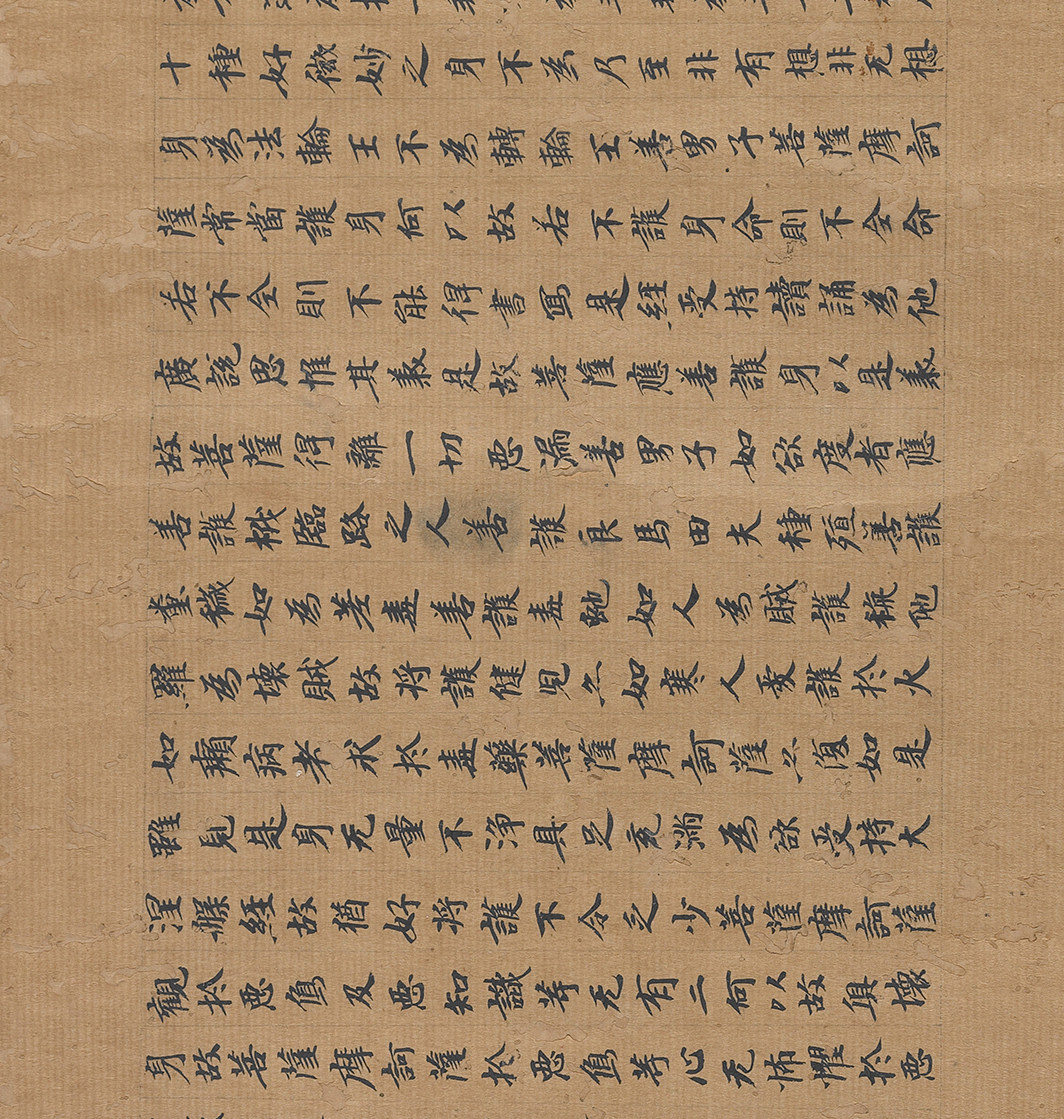 十種好微妙之身不為乃至非有想非无想
身為法輪王不為轉輪王善男子菩薩摩訶
薩常當護身何以故若不護身命則不全命
若不全則不能得書寫是經受持讀誦為他
廣說思惟其義是故菩薩應善護身以是義
故菩薩得離一切悪漏善男子如欲度者應
善護栰臨路之人善護良馬田夫種殖善護
糞穢如為差毒善護毒虵如人為賊護旃他
羅為壞賊故将護健児亦如寒人愛護扵火
如癩病者求扵毒藥菩薩摩訶薩亦復如是
雖見是身无量不淨具足充滿為欲受持大
涅槃經故猶好将護不令乏少菩薩摩訶薩
觀扵悪象及悪知識等无有二何以故俱壞
身故菩薩摩訶薩扵悪象等心无怖懼扵悪